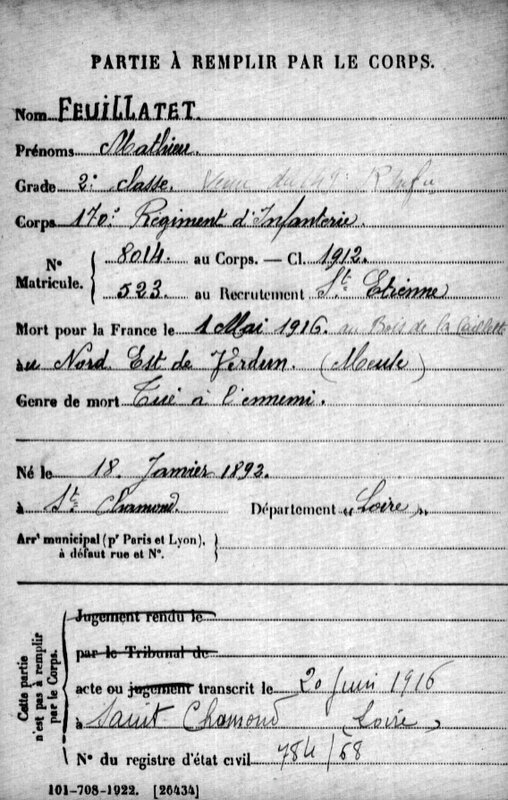 PARTIE À REMPLIR PAR LE CORPS.
Nom FEUILLATET.
Prénoms Mathieu.
Grade 2e classe. Venu du 149e R Infie
Corps 170e Régiment d'Infanterie.
N° Matricule. 8014. au Corps. — Cl. 1912.
523. au Recrutement St. Etienne
Mort pour la France le 1 Mai 1916. au Bois de la Caillette
au Nord Est de Verdun. (Meuse)
Genre de mort Tué à l'ennemi.
Né le 18. Janvier 1892.
à St. Chamond. Département "Loire"
Arrt municipal (pr Paris et Lyon), à défaut rue et N°.
Cette partie n'est pas à remplir par le Corps.
Jugement rendu le
par le Tribunal de
acte ou jugement transcrit le 20 Juin 1916
à Saint Chamond (Loire)
N° du registre d'état civil 784/68
101-708-1922. [26434]